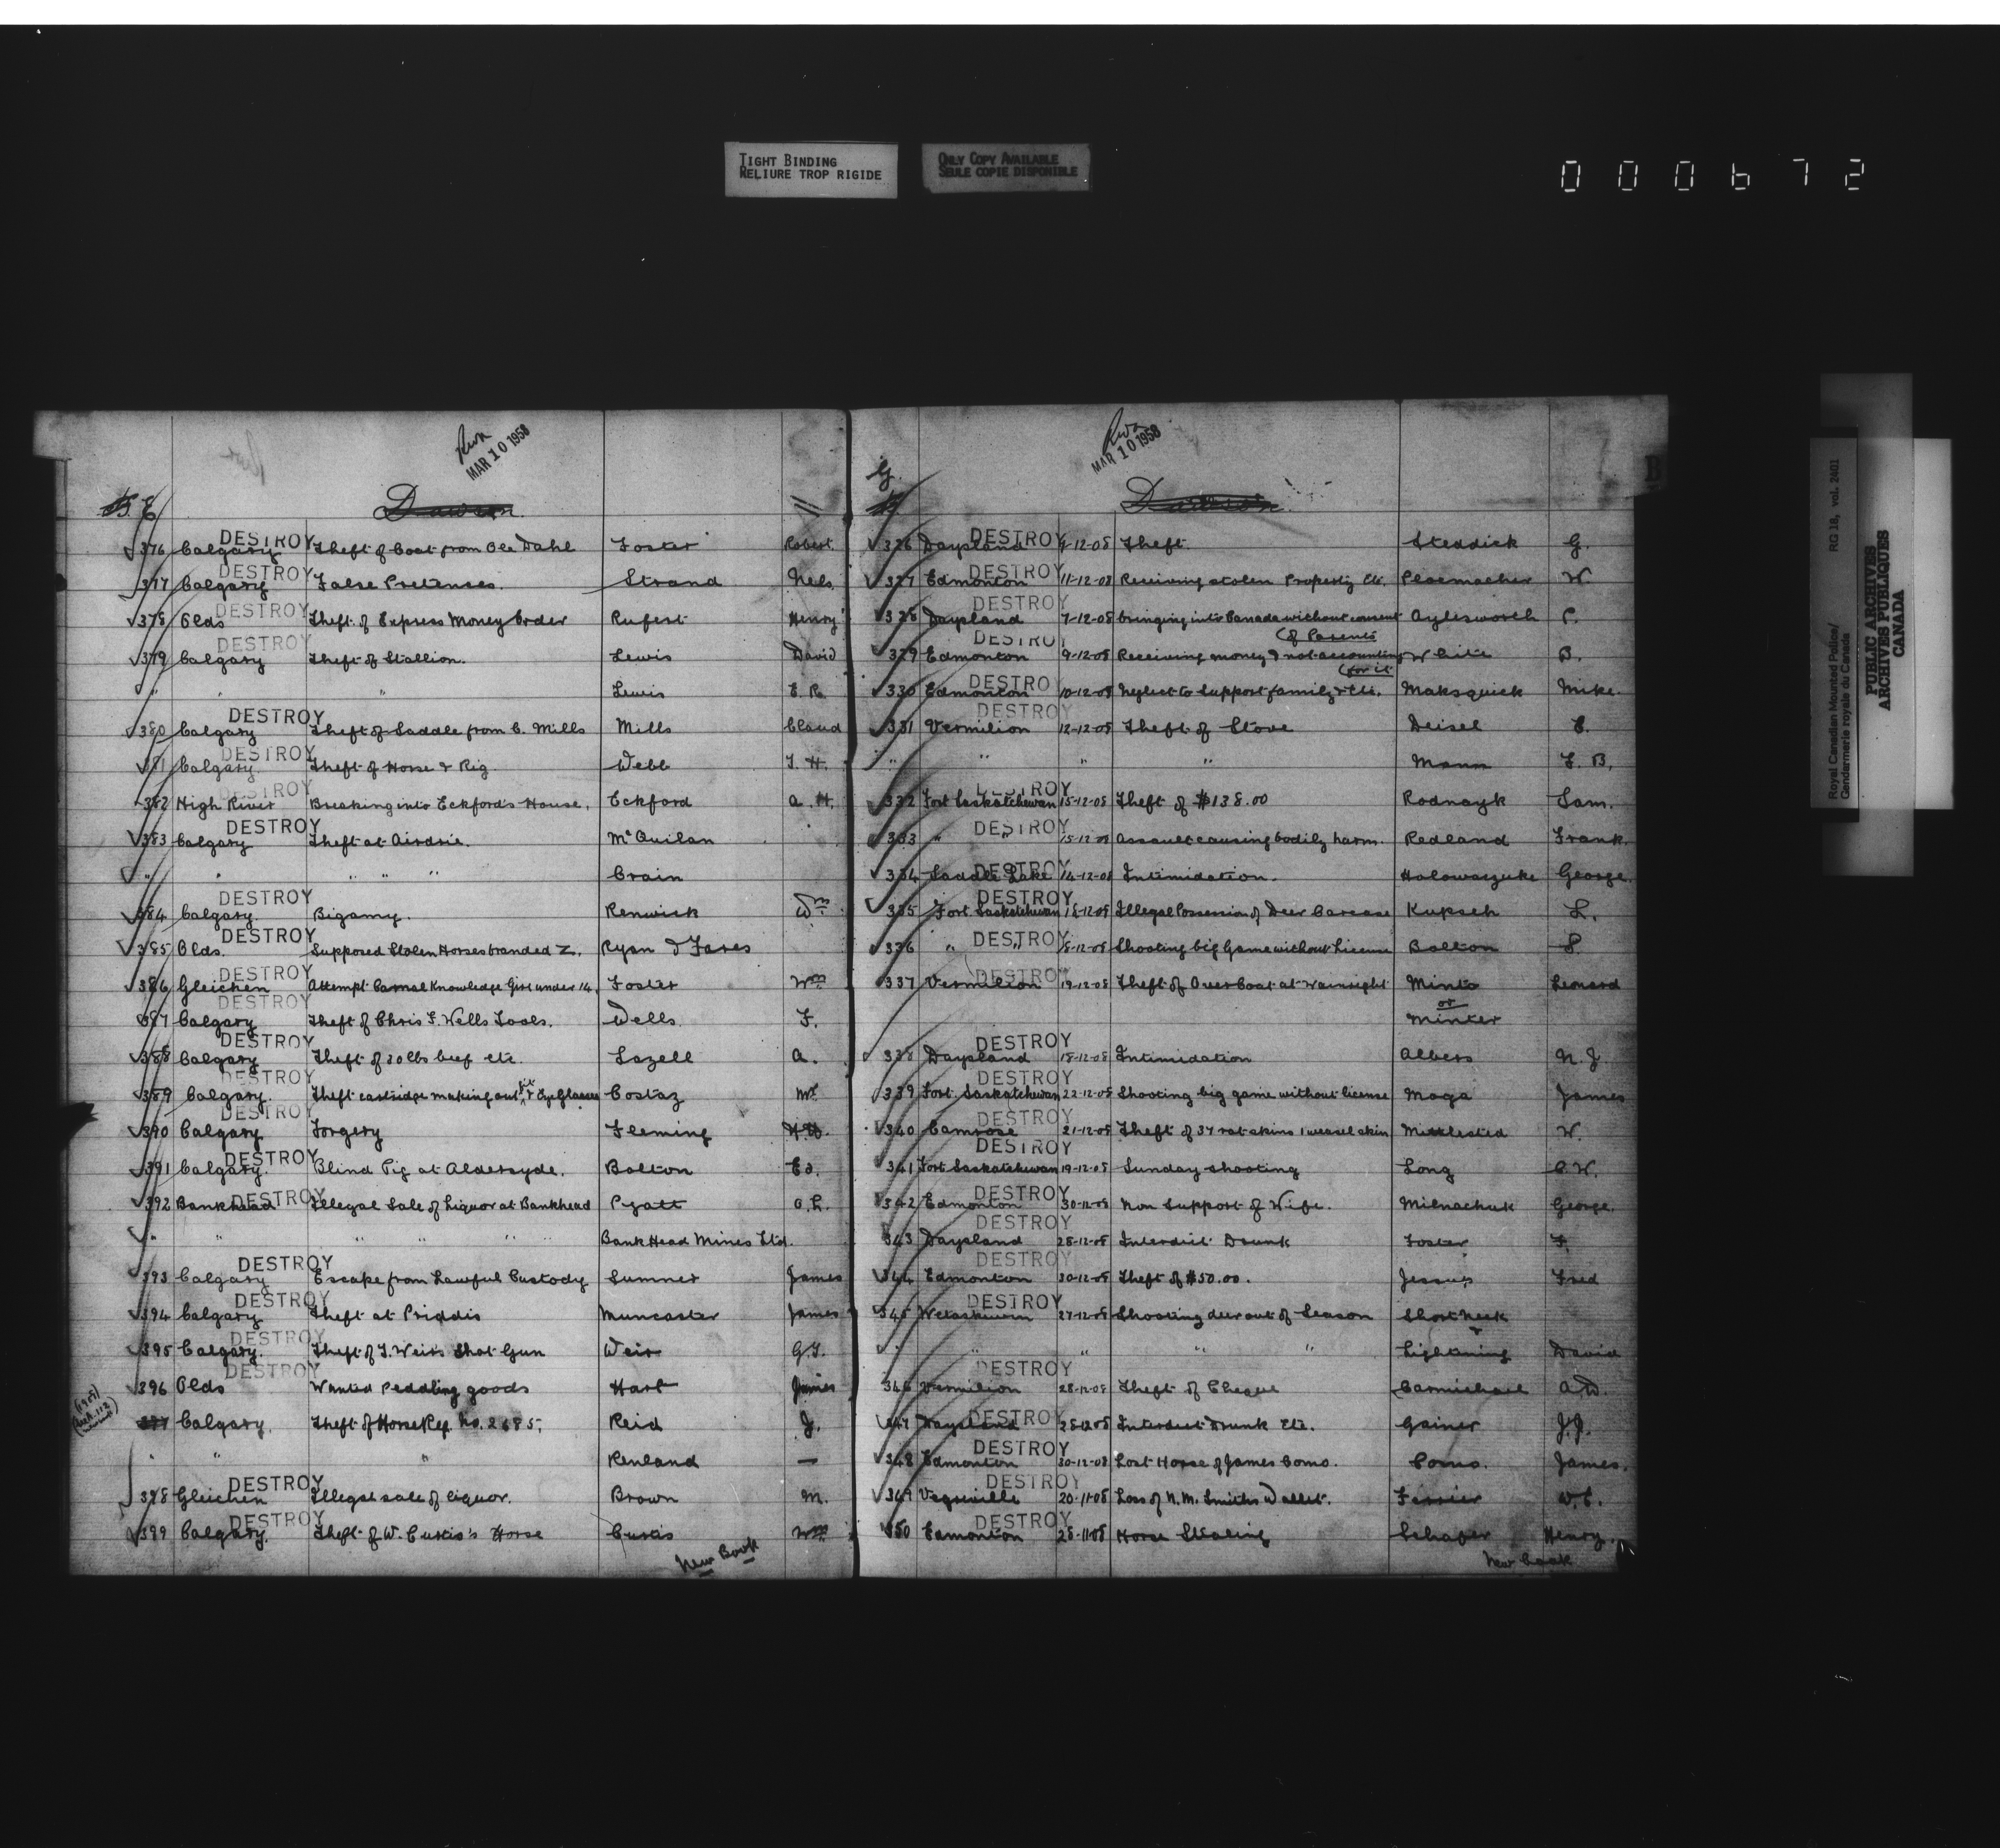 TIGHT BINDING
RELIURE TROP RIGIDE
ONLY COPY AVAILABLE
SEULE COPIE DISPONIBLE
000672
MAR 10 1958
E
Dawson
376 Calgary DESTROY Theft of Coat from Ole Dahl Foster Robert.
377 Calgary DESTROY False Pretenses. Strand Nels
378 Olds DESTROY Theft of Express Money Order Rufert Henry
379 Calgary DESTROY Theft of Stallion. Lewis David
" " " Lewis E. R.
380 Calgary DESTROY Theft of Saddle from C. Mills Mills Claud
381 Calgary DESTROY Theft of Horse & Rig. Webb T. H.
382 High River DESTROY Breaking into Eckford's House, Eckford A. H.
383 Calgary DESTROY Theft at Airdrie. McQuilan
" " " " " Crain
384 Calgary. DESTROY Bigamy. Renwick Wm
385 Olds. DESTROY Supposed Stolen Horses branded Z. Ryan & Fares
386 Gleichen DESTROY Attempt Carnal Knowledge Girl under 14. Foster Wm
387 Calgary DESTROY Theft of Chris F. Wells Tools. Wells F.
388 Calgary DESTROY Theft of 20 lbs beef etc. Lazell A.
389 Calgary. DESTROY Theft cartridge making outfit & Eye Glasses Costaz Mr
390 Calgary DESTROY Forgery Fleming
391 Calgary. DESTROY Blind Pig at Aldersyde. Bolton Ed.
392 Bankhead DESTROY Illegal Sale of Liquor at Bankhead Pyatt O. L.
" " " " " Bank Head Mines Ltd.
393 Calgary DESTROY Escape from Lawful Custody Sumner James
394 Calgary DESTROY Theft at Priddis Muncaster James
395 Calgary. DESTROY Theft of T. Weir's Shot Gun Weir G.T.
396 Olds DESTROY Wanted Peddling goods Hart James
397 Calgary. Theft of Horse Reg. No. 2685. Reid J.
" " " Renland —
398 Gleichen DESTROY Illegal sale of liquor. Brown M.
399 Calgary. DESTROY Theft of W. Curtis's Horse Curtis Wm
New Book
MAR 10 1958
G.
Dawson
326 Daysland DESTROY 9-12-08 Theft. Steddick G.
327 Edmonton DESTROY 11-12-08 Receiving stolen Property Etc. Ploemacher W.
328 Daysland DESTROY 7-12-08 bringing into Canada without consent Aylesworth C.
(of Parents
329 Edmonton DESTROY 9-12-08 Receiving money & not accounting White B.
(for it
330 Edmonton DESTROY 10-12-08 Neglect to Support family & Etc. Maksquick Mike.
331 Vermilion DESTROY 12-12-08 Theft of Stove Deisel C.
" " " " Mann F. B.
332 Fort Saskatchewan DESTROY 15-12-08 Theft of $138.00 Rodnayk Sam.
333 " " DESTROY 15-12-08 Assault causing bodily harm. Redland Frank.
334 Saddle Lake DESTROY 14-12-08 Intimidation. Holowaszuke George.
335 Fort Saskatchewan DESTROY 18-12-08 Illegal Possession of Deer Carcase Kupsch L.
336 " " DESTROY 18-12-08 Shooting big Game without License Bolton S.
337 Vermilion DESTROY 19-12-08 Theft of Over Coat at Wainright Minto Leonard
or
Minter
338 Daysland DESTROY 18-12-08 Intimidation Albers N. J.
339 Fort Saskatchewan DESTROY 22-12-08 Shooting big game without license Moga James
340 Camrose DESTROY 21-12-08 Theft of 37 rat skins 1 weasel skin Mittlested W.
341 Fort Saskatchewan DESTROY 19-12-08 Sunday shooting Long C. W.
342 Edmonton DESTROY 30-12-08 Non Support of Wife. Milnachuk George.
343 Daysland DESTROY 28-12-08 Interdict Drunk Foster F.
344 Edmonton DESTROY 30-12-08 Theft of $50.00. Jessup Fred
345 Wetaskiwin DESTROY 27-12-08 Shooting deer out of Season Short Neck
&
" " " " " Lightning David
346 Vermilion DESTROY 28-12-08 Theft of Cheque Carmichael A. D.
347 Daysland DESTROY 28-12-08 Interdict Drunk Etc. Gainer J. J.
348 Edmonton DESTROY 30-12-08 Lost Horse of James Como. Como. James.
349 Vegreville DESTROY 20-11-08 Loss of N. M. Smiths Wallet. Ferrier W. C.
350 Edmonton DESTROY 28-11-08 Horse Stealing Schafer Henry.
New book
Royal Canadian Mounted Police/ RG 18, vol. 2401
Gendarmerie royale du Canada
PUBLIC ARCHIVES
ARCHIVES PUBLIQUES
CANADA